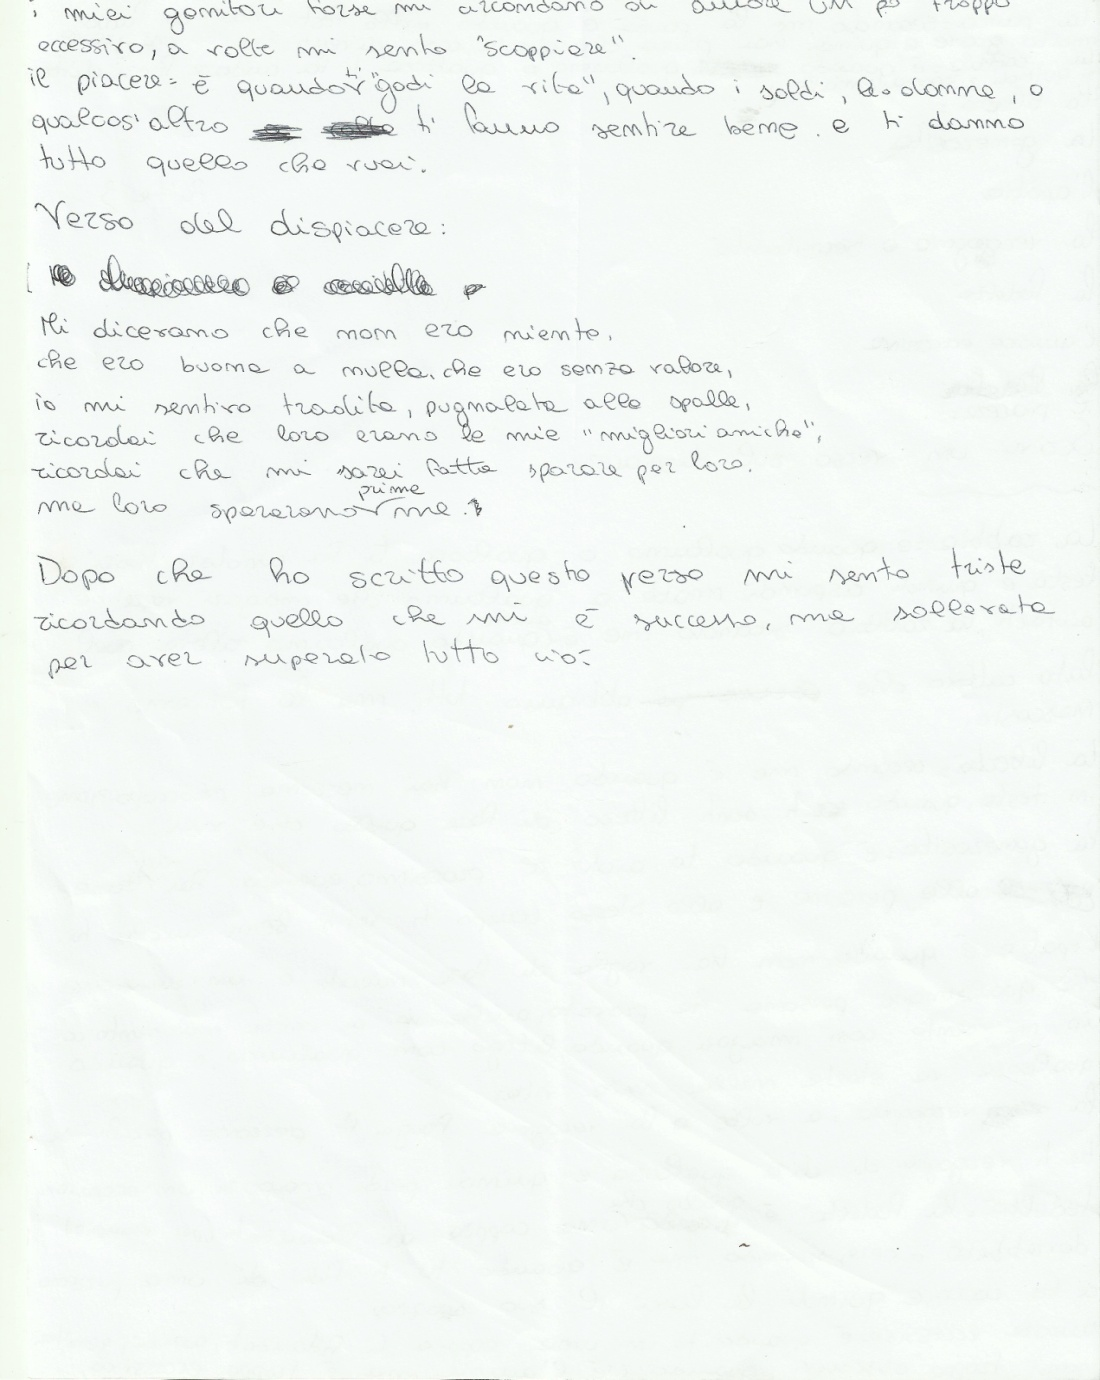 i miei genitori forse mi circondano di amore un po troppo
eccessivo, a volte mi sento "scoppiare".
il piacere = è quando ti "godi la vita", quando i soldi, le donne, o
qualcos'altro ti fanno sentire bene e ti danno
tutto quello che vuoi.
Verso del dispiacere:
Mi dicevano che non ero niente,
che ero buona a nulla, che ero senza valore,
io mi sentivo tradita, pugnalata alle spalle,
ricordai che loro erano le mie "migliori amiche",
ricordai che mi sarei fatta sparare per loro.
ma loro spararono prima me.
Dopo che ho scritto questo verso mi sento triste
ricordando quello che mi è successo, ma sollevata
per aver superato tutto ciò.